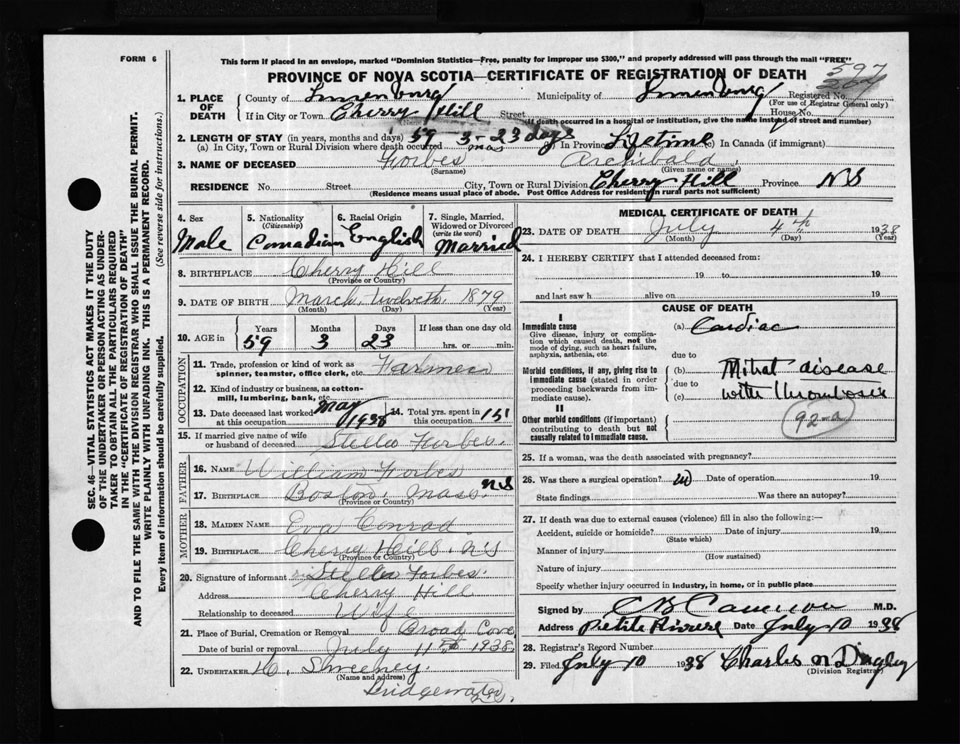 FORM 6
This form if placed in an envelope, marked "Dominion Statistics—Free, penalty for improper use $300," and properly addressed will pass through the mail "FREE"
PROVINCE OF NOVA SCOTIA—CERTIFICATE OF REGISTRATION OF DEATH
597
1. PLACE OF DEATH County of Lunenburg Municipality of Lunenburg Registered No.
(For use of Registrar General only)
If in City or Town Cherry Hill Street House No.
(If death occurred in a hospital or institution, give the name instead of street and number)
2. LENGTH OF STAY (in years, months and days) 59 3 mos 23 days
(a) In City, Town or Rural Division where death occurred (b) In Province Lifetime (c) In Canada (if immigrant)
3. NAME OF DECEASED Forbes Archibald
(Surname) (Given name or names)
RESIDENCE No. Street City, Town or Rural Division Cherry Hill Province NS
(Residence means usual place of abode. Post Office Address for residents in rural parts not sufficient)
4. Sex Male
5. Nationality (Citizenship) Canadian
6. Racial Origin English
7. Single, Married, Widowed or Divorced (write the word) Married
8. BIRTHPLACE Cherry Hill
(Province or Country)
9. DATE OF BIRTH March Twelveth 1879
(Month) (Day) (Year)
10. AGE in Years 59 Months 3 Days 23 If less than one day old hrs. or min.
OCCUPATION
11. Trade, profession or kind of work as spinner, teamster, office clerk, etc. Farmer
12. Kind of industry or business, as cotton-mill, lumbering, bank, etc.
13. Date deceased last worked at this occupation May 1938 14. Total yrs. spent in 15
15. If married give name of wife or husband of deceased Stella Forbes.
FATHER
16. NAME William Forbes
17. BIRTHPLACE Boston Mass. NS
(Province or Country)
MOTHER
18. MAIDEN NAME Eva Conrad
19. BIRTHPLACE Cherry Hill NS
(Province or Country)
20. Signature of informant Stella Forbes.
Address Cherry Hill
Relationship to deceased Wife
21. Place of Burial, Cremation or Removal Broad Cove
Date of burial or removal July 11th 1938.
22. UNDERTAKER H. Sweeney.
(Name and address)
Bridgewater
MEDICAL CERTIFICATE OF DEATH
23. DATE OF DEATH July 4th 1938
(Month) (Day) (Year)
24. I HEREBY CERTIFY that I attended deceased from:
19 to 19
and last saw h alive on 19
CAUSE OF DEATH
I
Immediate cause
Give disease, injury or complication which caused death, not the mode of dying, such as heart failure, asphyxia, asthenia, etc.
(a) Cardiac
due to
Morbid conditions, if any, giving rise to immediate cause (stated in order proceeding backwards from immediate).
(b) Mitral disease
due to
(c) with thrombosis
II
Other morbid conditions (if important) contributing to death but not causally related to immediate cause.
92-a
25. If a woman, was the death associated with pregnancy?
26. Was there a surgical operation? Date of operation 19
State findings Was there an autopsy?
27. If death was due to external causes (violence) fill in also the following:—
Accident, suicide or homicide? Date of injury 19
(State which)
Manner of injury
(How sustained)
Nature of injury
Specify whether injury occurred in industry, in home, or in public place
Signed by C B Cameron M.D.
Address Petite Riviere Date July 10 1938
28. Registrar's Record Number
29. Filed July 10 1938 Charles M Dingley
(Division Registrar)
SEC. 46—VITAL STATISTICS ACT MAKES IT THE DUTY
OF THE UNDERTAKER OR PERSON ACTING AS UNDER-
TAKER TO OBTAIN ALL THE PARTICULARS REQUIRED
IN THE "CERTIFICATE OF REGISTRATION OF DEATH"
AND TO FILE THE SAME WITH THE DIVISION REGISTRAR WHO SHALL ISSUE THE BURIAL PERMIT.
WRITE PLAINLY WITH UNFADING INK. THIS IS A PERMANENT RECORD.
Every item of information should be carefully supplied. (See reverse side for instructions.)